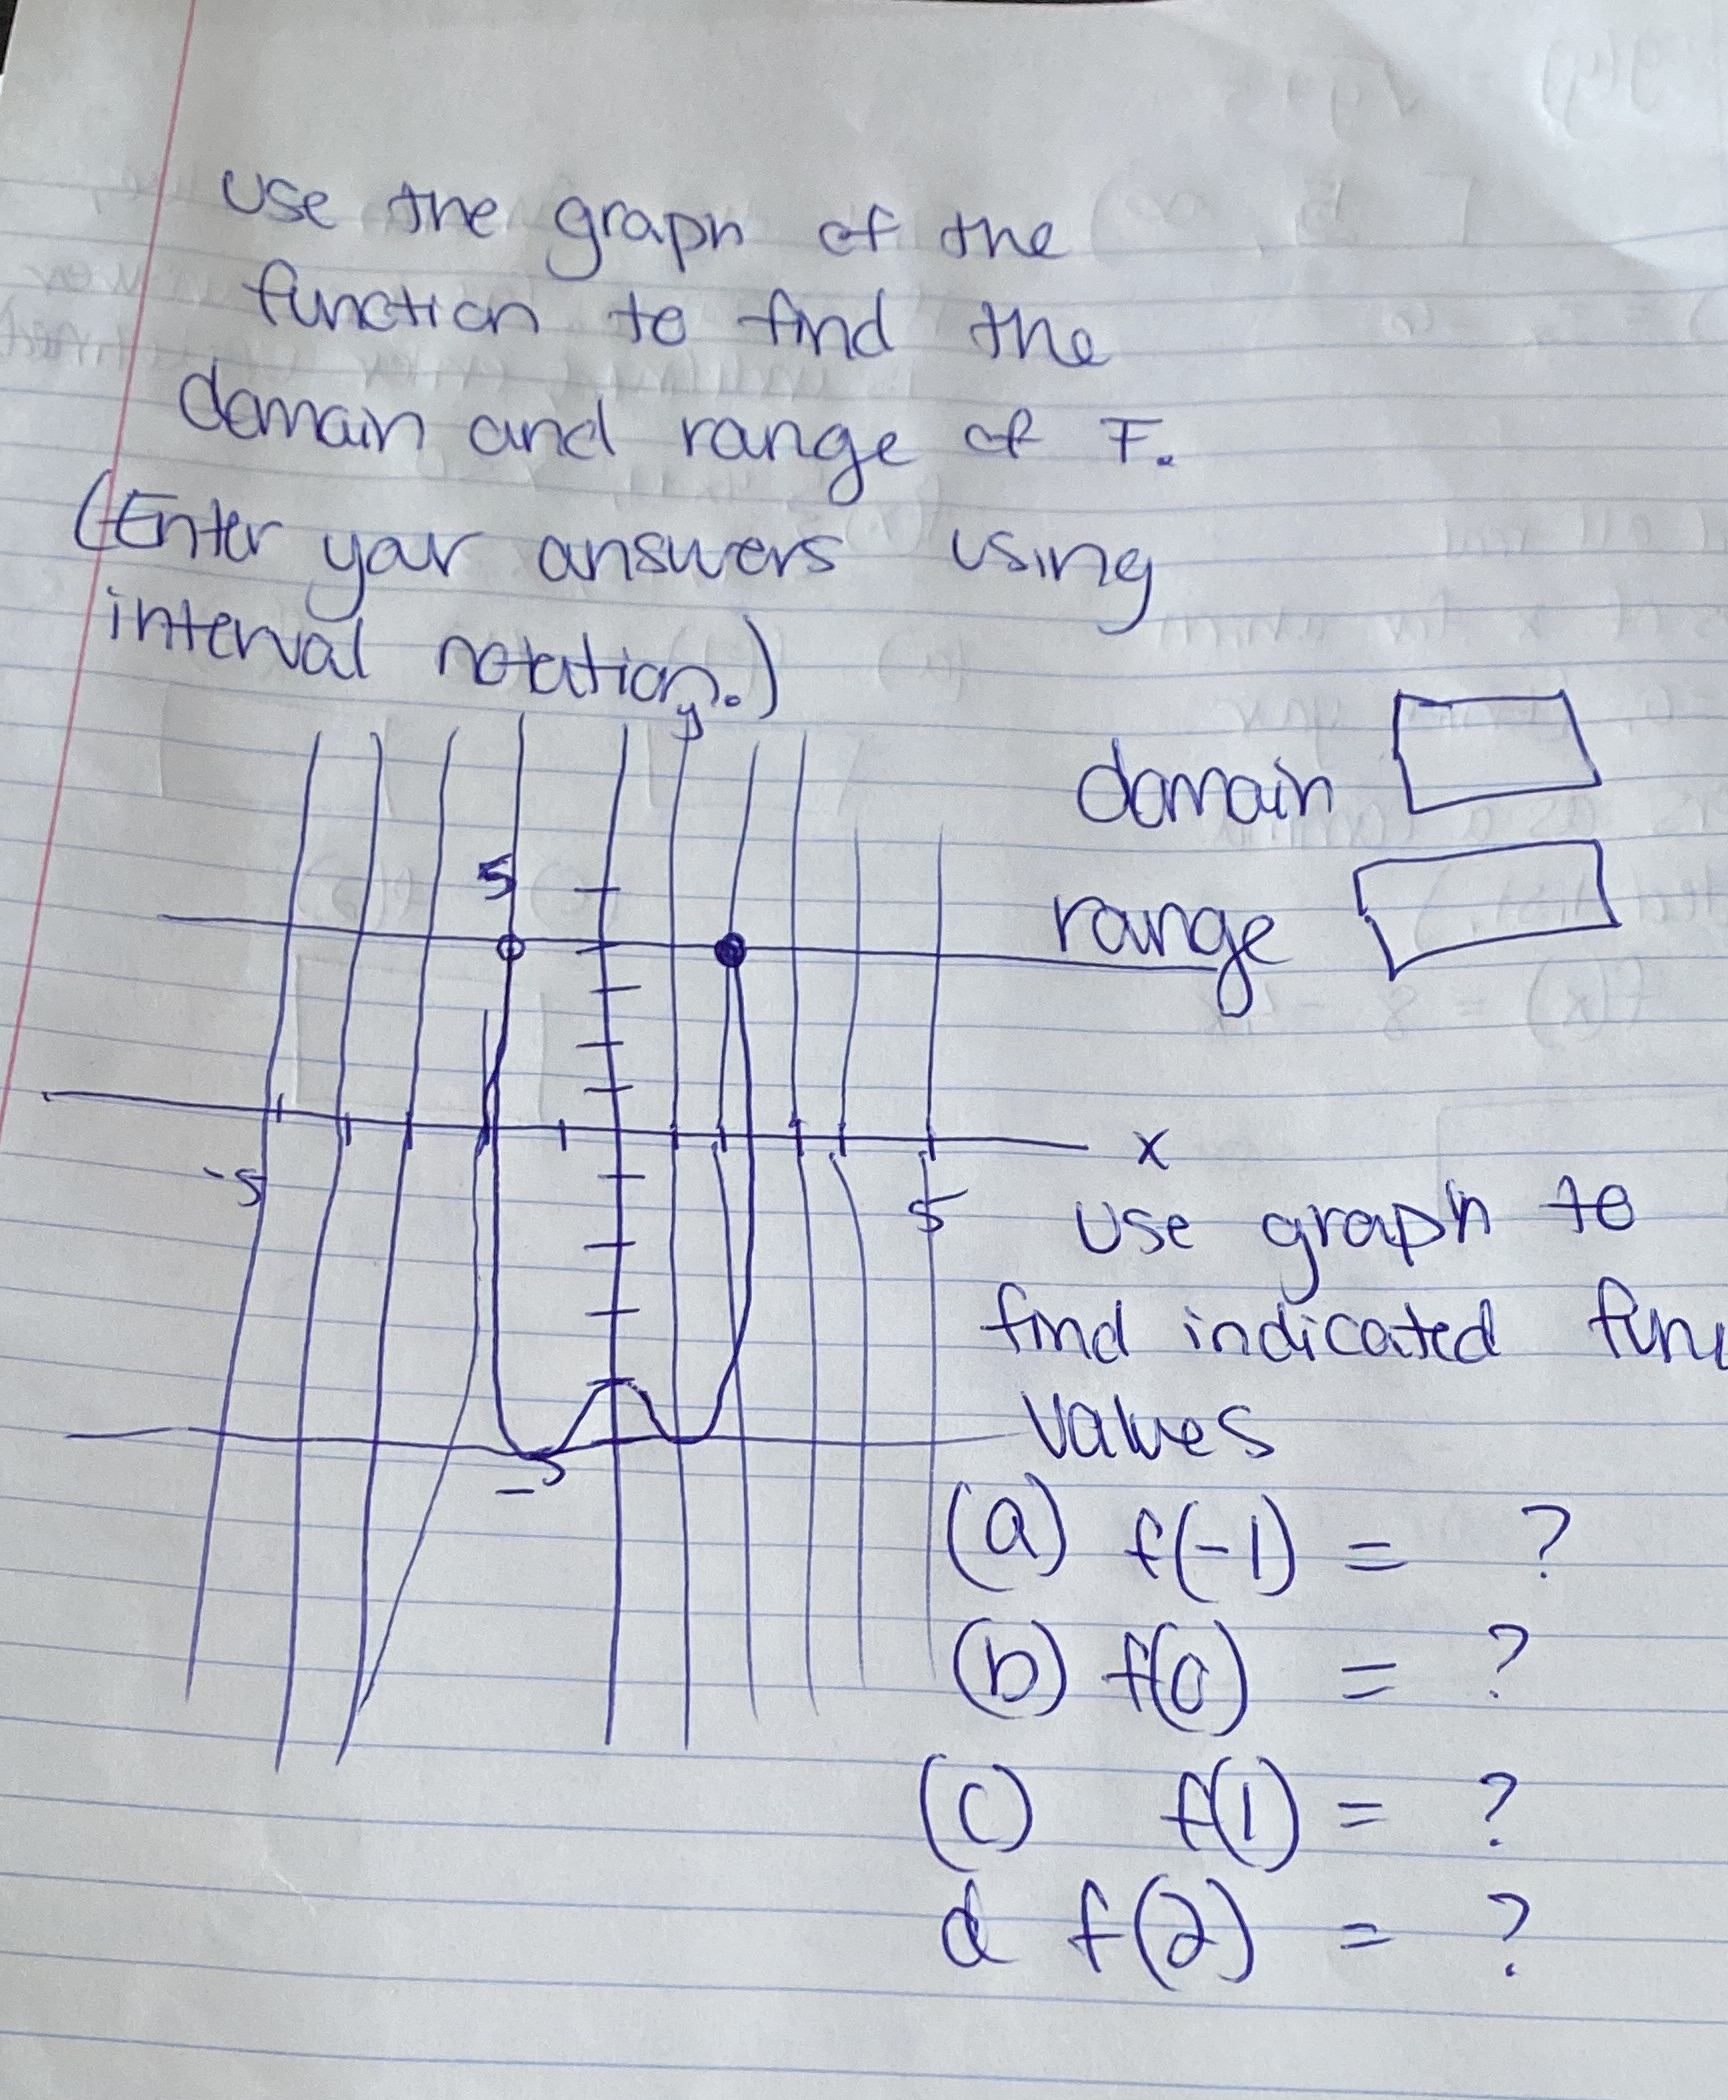 use the graph of the
function to find the
domain and range of F.
(Enter your answers using
interval notation.)
y
domain
5
range
x
-5
5
use graph to
find indicated func
values
-5
(a) f(-1) = ?
(b) f(0) = ?
(c) f(1) = ?
d f(2) = ?